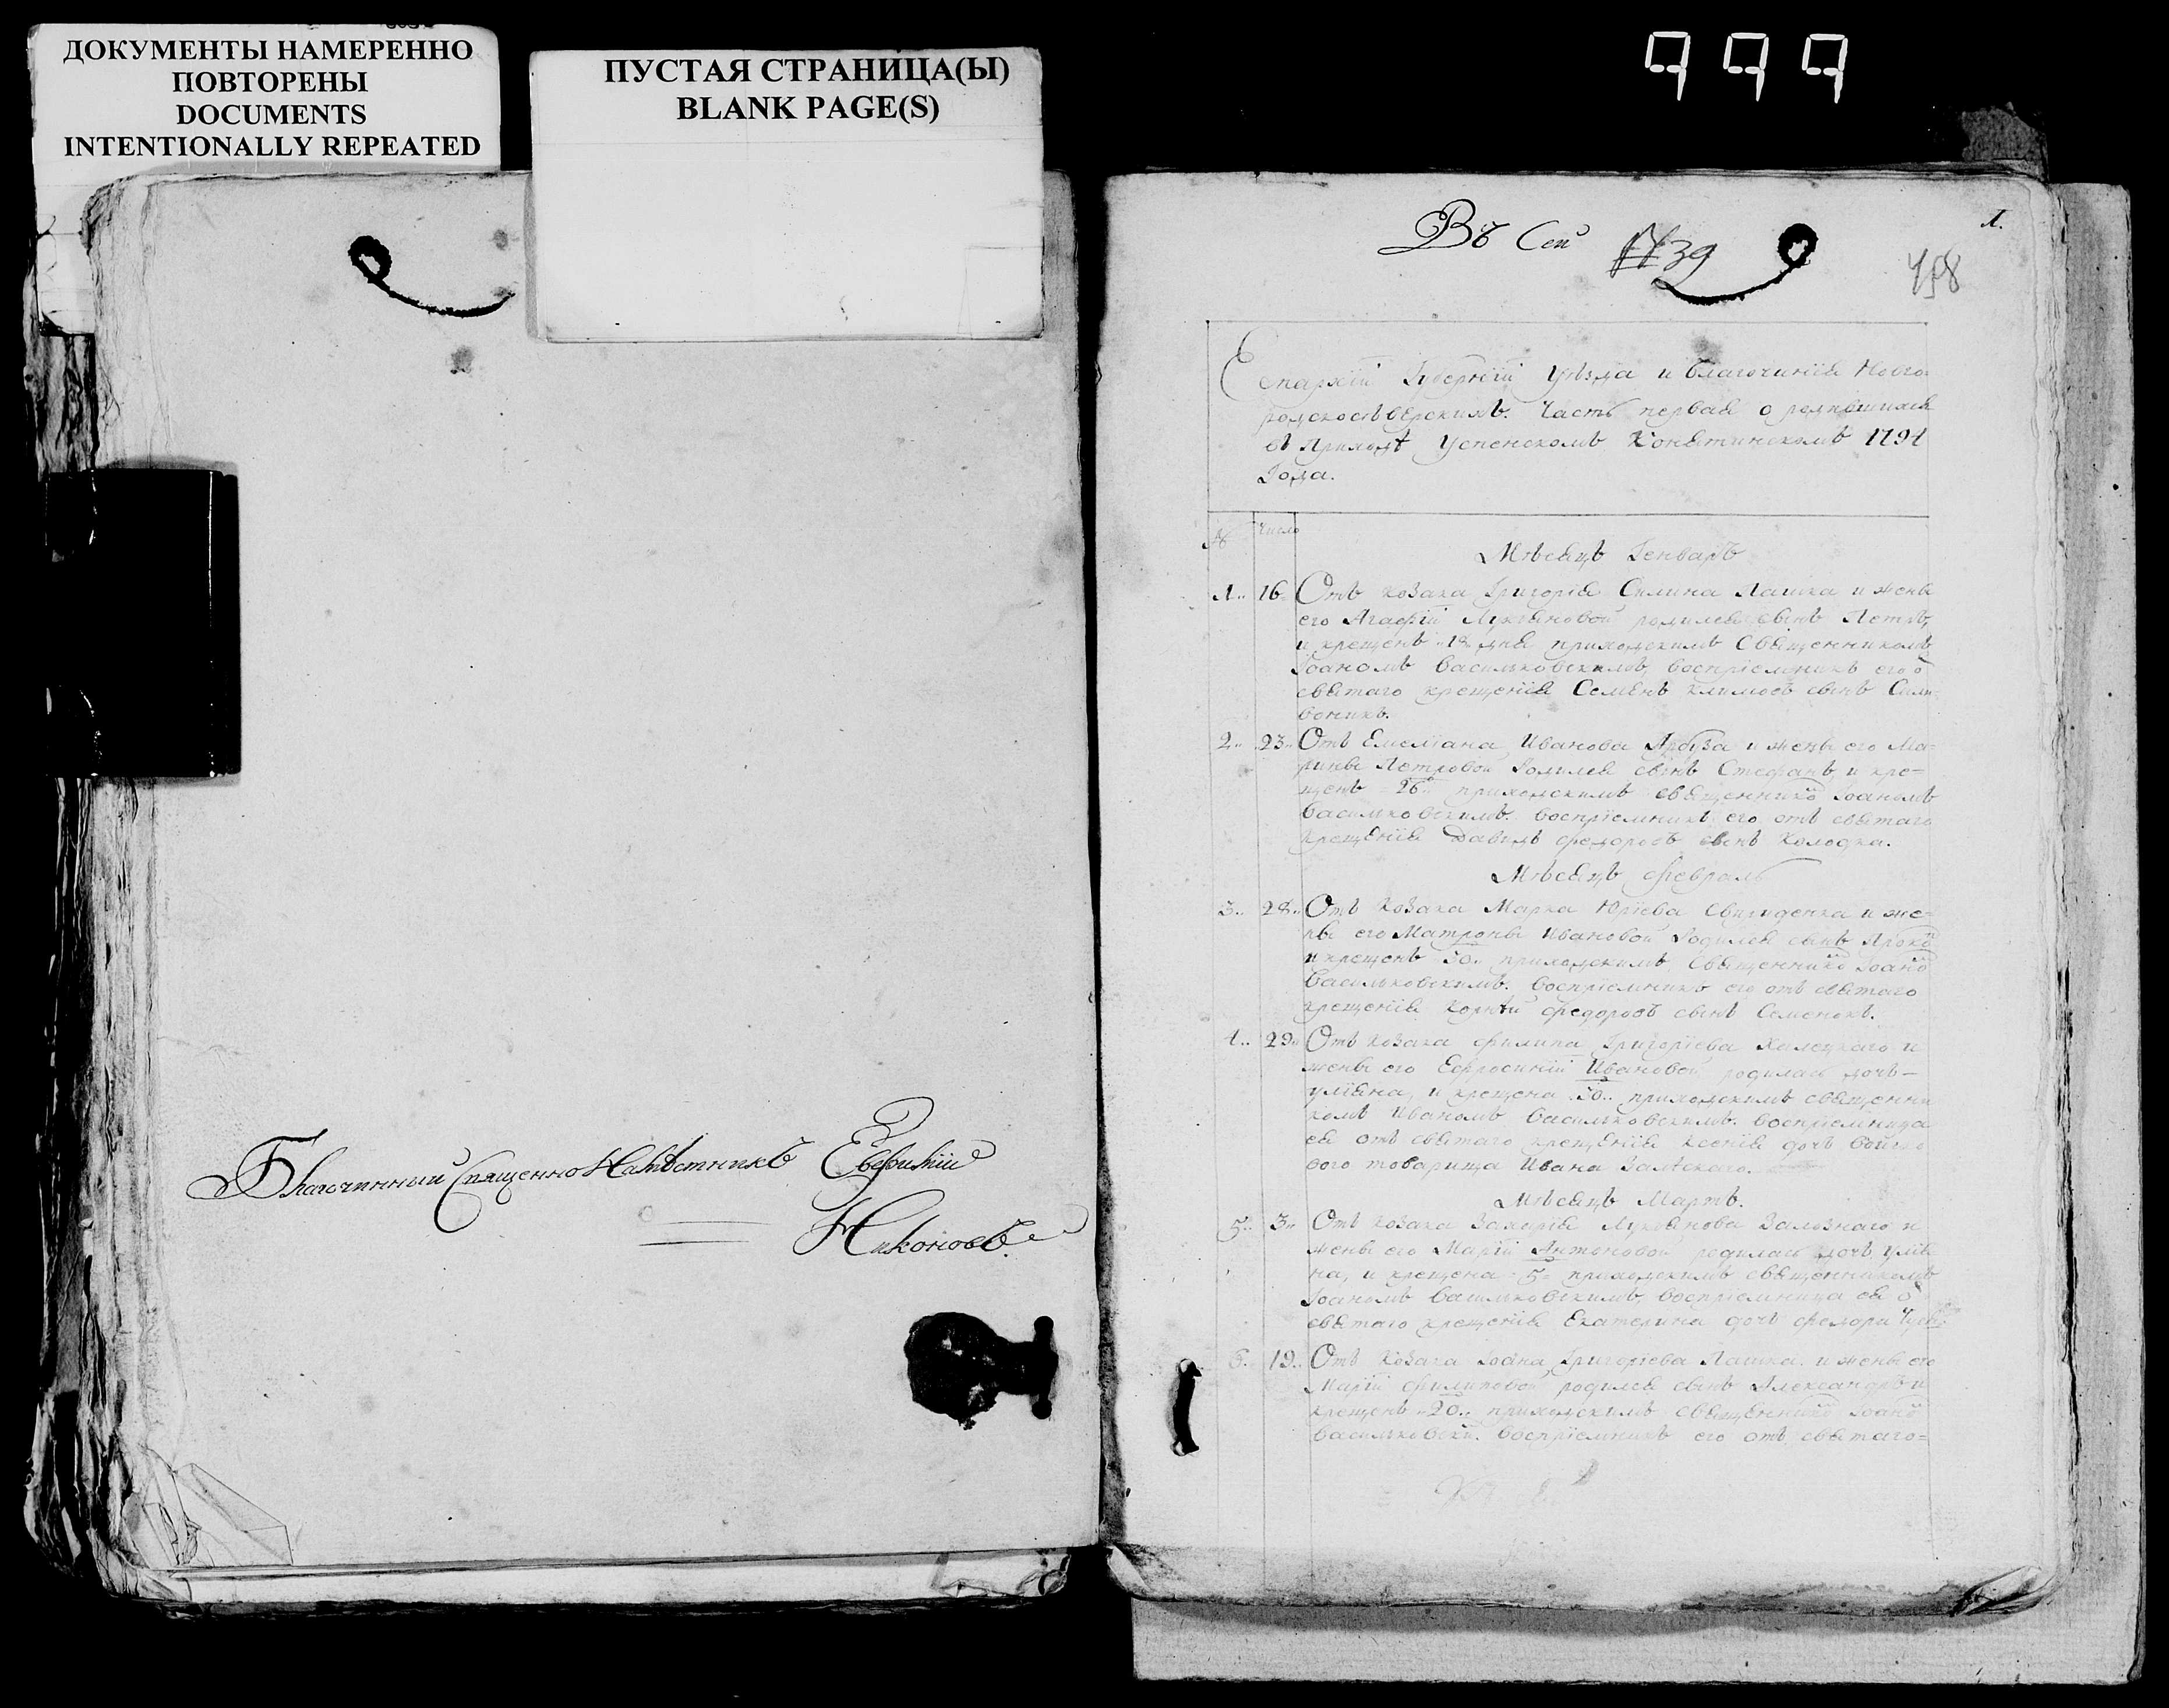 ДОКУМЕНТЫ НАМЕРЕННО
ПОВТОРЕНЫ
DOCUMENTS
INTENTIONALLY REPEATED
ПУСТАЯ СТРАНИЦА(Ы)
BLANK PAGE(S)
999
Благочинный Священно Намѣстникъ Евѳимій
Никоновъ.
Въ Сей №39
1.
458
Епархіи Губерніи уѣзда и благочинія Новго-
родскосѣверскихъ. Часть первая о родившихся
въ Приходѣ Успенскомъ Конятинскомъ 1794
Года.
№ Число
Мѣсяцъ Генварь
1.. 16. Отъ козака Григорія Силина Пашка и жены
его Агафіи Лукьяновой родился сынъ Петръ,
и крещенъ 18 дня приходскимъ Священникомъ
Іоаномъ Васильковскимъ, воспріемникъ его ѿ
святаго крещенія Семенъ Климовъ сынъ Сили-
воникъ.
2.. 23.. Отъ Емеліана Иванова Арбуза и жены его Ма-
рины Петровой Родился сынъ Стефанъ, и кре=
щенъ 26 приходскимъ священнико Іоаномъ
Васильковскимъ. воспріемникъ его отъ святаго
крещенія Давидъ Федоровъ сынъ Колодка.
Мѣсяцъ Февраль
3.. 28.. Отъ Козака Марка Юрїева Свириденка и же=
ны его Матроны Ивановой Родился сынъ
и крещенъ 30.. приходскимъ Священнико Іоано
Васильковскимъ. воспріемникъ его отъ святаго
крещенія Корнѣй Федоровъ сынъ Семенокъ.
4.. 29.. Отъ козака Филипа Григоріева Халецкаго и
жены его Ефросиніи Ивановой родилась дочь—
уліяна, и крещена 30.. приходскимъ священни
комъ Иваномъ Васильковскимъ. воспріемница
ея отъ святаго крещенія Ксенія дочь войско
вого товарища Ивана Залѣскаго.
Мѣсяцъ Мартъ.
5.. 3.. Отъ козака Захарія Лукьянова Залознаго и
жены его Маріи Антоновой родилась дочь улія
на, и крещена 5= приходскимъ священникомъ
Іоаномъ Васильковскимъ, воспріемница ея ѿ
святаго крещенія Екатерина дочь Федора
6. 19.. Отъ Козака Іоана Григоріева Пашка и жены его
Маріи Филиповой родился сынъ Александръ и
крещенъ 20.. приходскимъ священнико Іоано
Васильковски. воспріемникъ его отъ святаго=